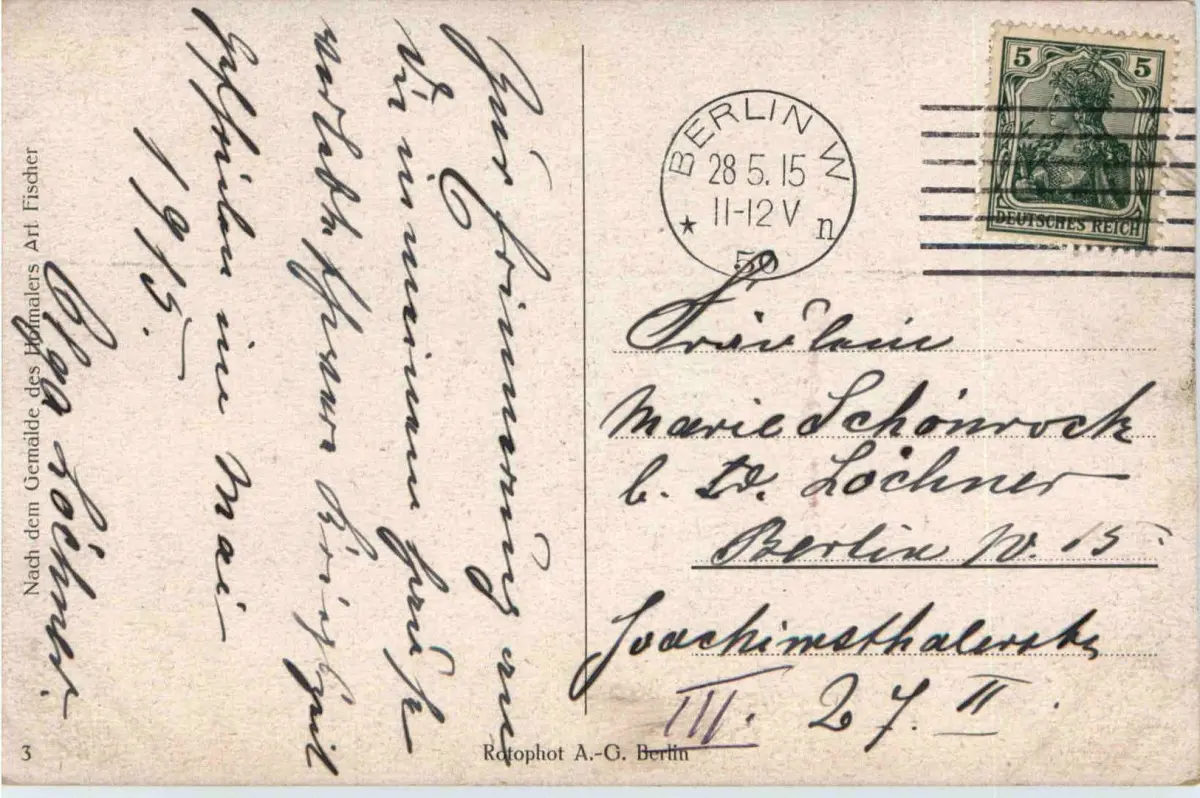 Zur Erinnerung an
die in meinem Hause
verlebte schwere Kriegszeit
im Mai
1915.
Olga Löchner.
Nach dem Gemälde des Hofmalers Art. Fischer
3
Rotophot A.-G. Berlin
BERLIN W
28 5. 15
11-12 V
* n
50
5 5
DEUTSCHES REICH
Fräulein
Marie Schönrock
b. Löchner
Berlin W. 15
Joachimsthalerstr
III. 27. II.